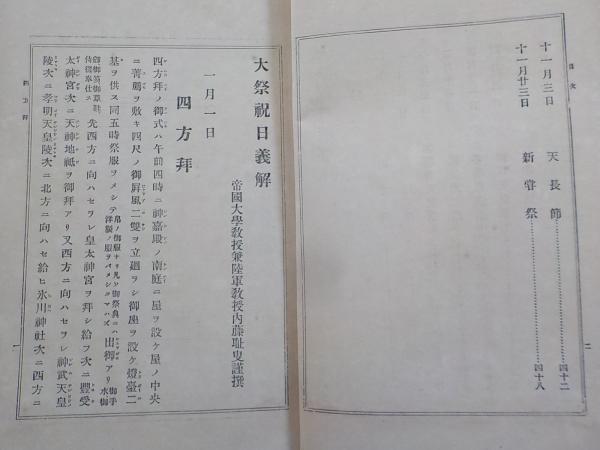 目次
十一月三日　天長節　四十二
十一月廿三日　新嘗祭　四十八
二
大祭祝日義解
帝國大學教授兼陸軍教授內藤耻叟謹撰
一月一日
四方拜
四方拜ノ御式ハ午前四時ニ神嘉殿ノ南庭ニ屋ヲ設ケ屋ノ中央
ニ菁薦ヲ敷キ四尺ノ御屏風二雙ヲ立廻ヲシ御座ヲ設ケ燈臺二
基ヲ供ス同五時祭服ヲメシテ 帛ノ御服ナリ凡ソ御祭典ニハ洋製ノ服ヲバメシタマハズ 出御アリ 御手水御
劔御笏御草鞋侍從奉仕ス 先西方ニ向ハセヲレ皇太神宮ヲ拜シ給フ次ニ豐受
太神宮次ニ天神地祇ヲ御拜アリ又西方ニ向ハセヲレ神武天皇
陵次ニ孝明天皇陵次ニ北方ニ向ハセ給ヒ氷川神社次ニ西方ニ
四方拜
一